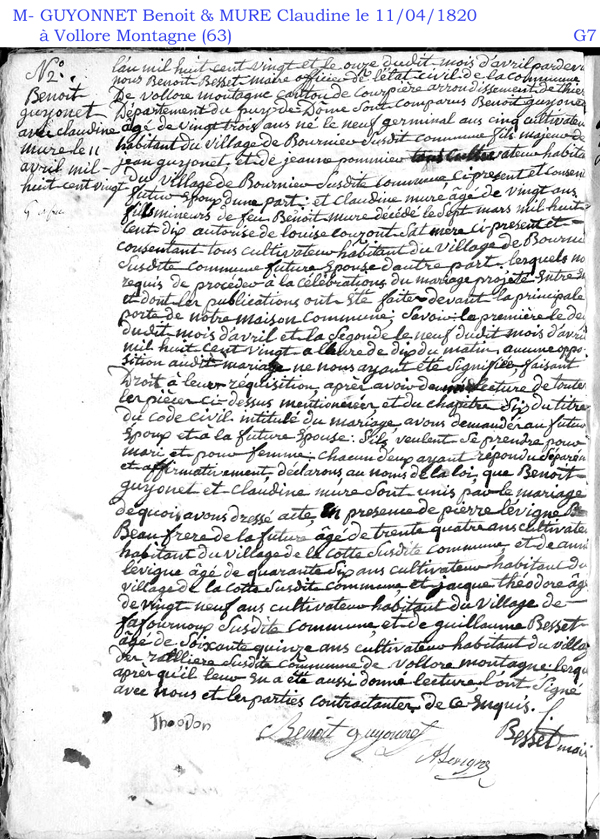 M- GUYONNET Benoit & MURE Claudine le 11/04/1820
à Vollore Montagne (63)
G7
N 2°.
Benoit
guyonet
avec claudine
mure le 11
avril mil
huit cent vingt
l'an mil huit cent vingt et le onze dudit mois d'avril pardeva
nous Benoit Besset maire officier de l'état civil de la commune
De vollore montagne canton de Courpière arrondissement de thie
Département du puy de Dome sont comparus Benoit guyonet
âgé de vingt trois ans né le neuf germinal ans cinq cultivateu
habitant du village de Bournier susdit commune fils majeur de
jean guyonet, et de jeanne pommier tous cultivateur habita
Du village de Bournier susdite commune ci present et consen
futur Epoux d'une part; et Claudine mure âgé de vingt ans
fille mineurs de feu Benoit mure décédé le sept mars mil huit
cent dix autorise de louise couzont sat mere ci present et
consentant tous cultivateur habitant du village de Bournie
susdite commune future Epouse d'autre part. lesquels no
requis de procéder à la célébrations du mariage projeté Entre
et dont les publications ont été faite devant la principale
porte de notre maison commune; Savoir la première le de
dudit mois d'avril et la segonde le neuf dudit mois d'avri
mil huit cent vingt a lheure de dix du matin, aucune oppo
sition audit mariage ne nous ayant été signifiée, faisant
Droit à leur réquisition, après avoir donné lecture de toute
les pièces ci-dessus mentionnées, et du chapitre six du titre
du code civil intitulé du mariage, avons demander au futur
Epoux et à la future Epouse; s'ils veulent se prendre pour
mari et pour femme; chacun d'eux ayant répondu séparem
et affirmativement, déclarons au noms de la loi, que Benoit
guyonet et claudine mure sont unis par le mariage
de quoi avons dressé acte En presence de pierre levigne
Beau frere de la future, âgé de trente quatre ans cultivate
habitant du village de la cotte susdite commune, et de
levigne âgé de quarante six ans cultivateur habitant du
village de la cotte susdite commune, et jacque théodore âg
de vingt neuf ans cultivateur habitant du village de
fafournoux susdite commune, et de guillaume Besset
âgé de soixante quinze ans cultivateur habitant du villag
susdite commune de vollore montagne lesqu
après qu'il leur En a été aussi donné lecture l'ont signé
avec nous et les parties contractantes de ce Enquis.
Benoit guyonnet
Besset mair